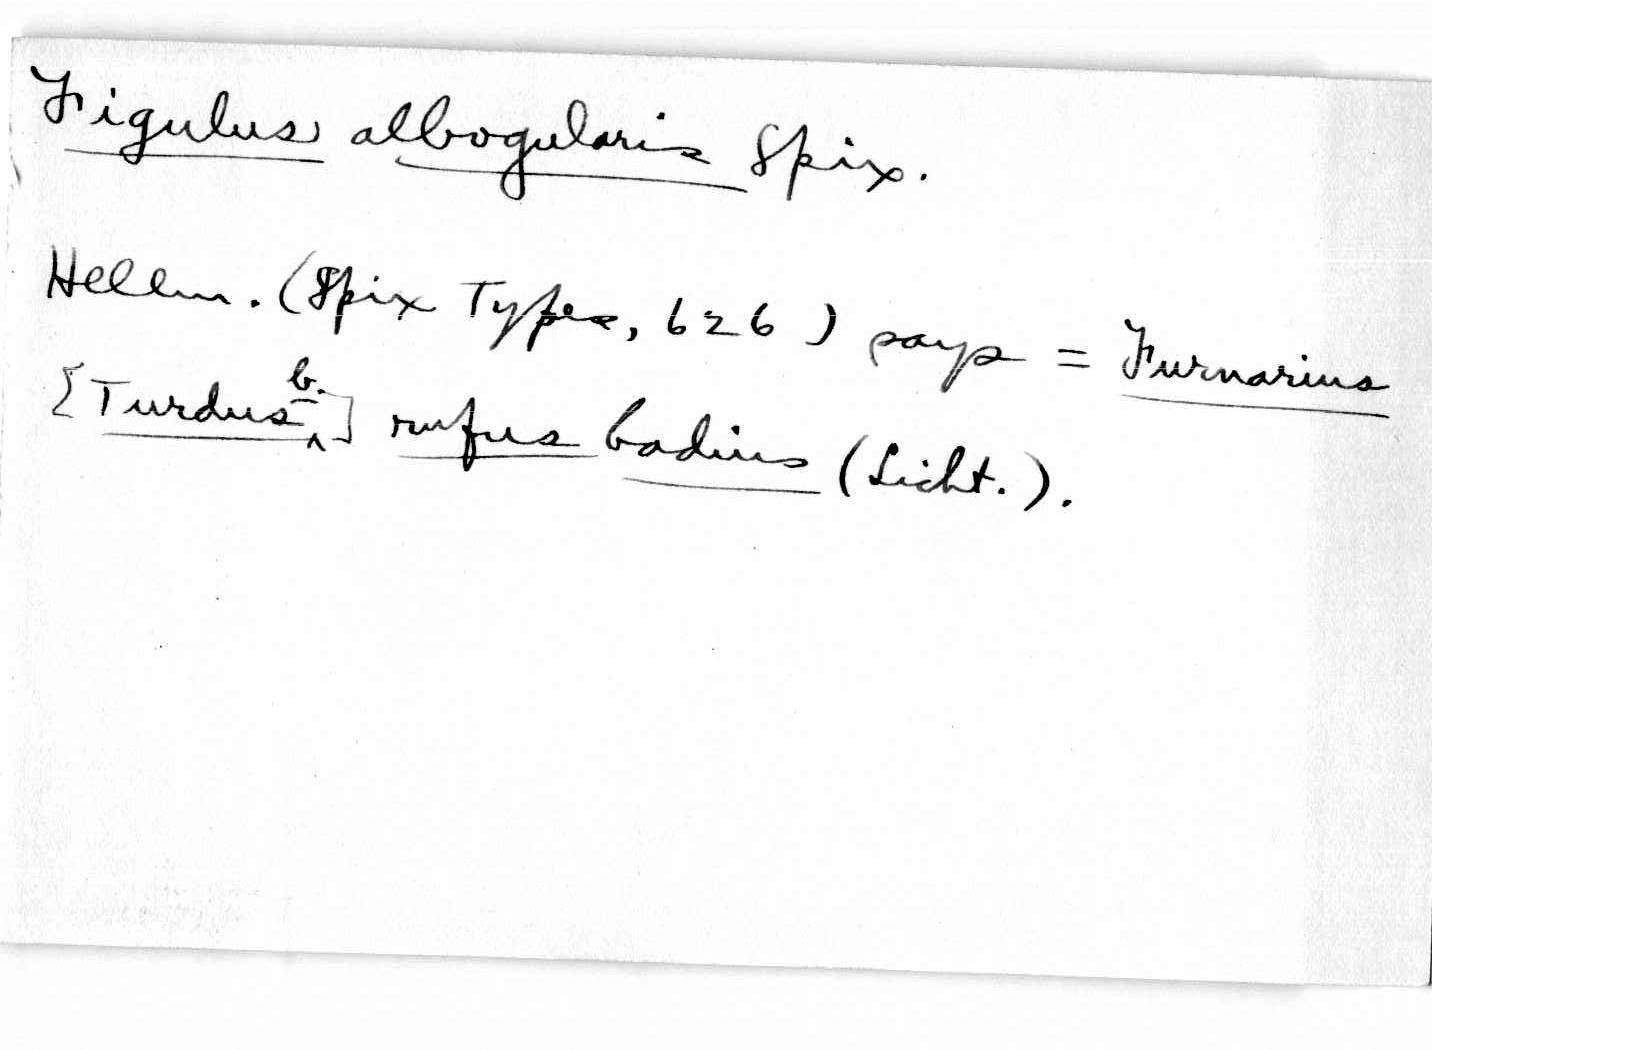 Figulus albogularis Spix.
Hellm. (Spix Types, 626) says = Furnarius
[Turdus b.] rufus badius (Licht.).